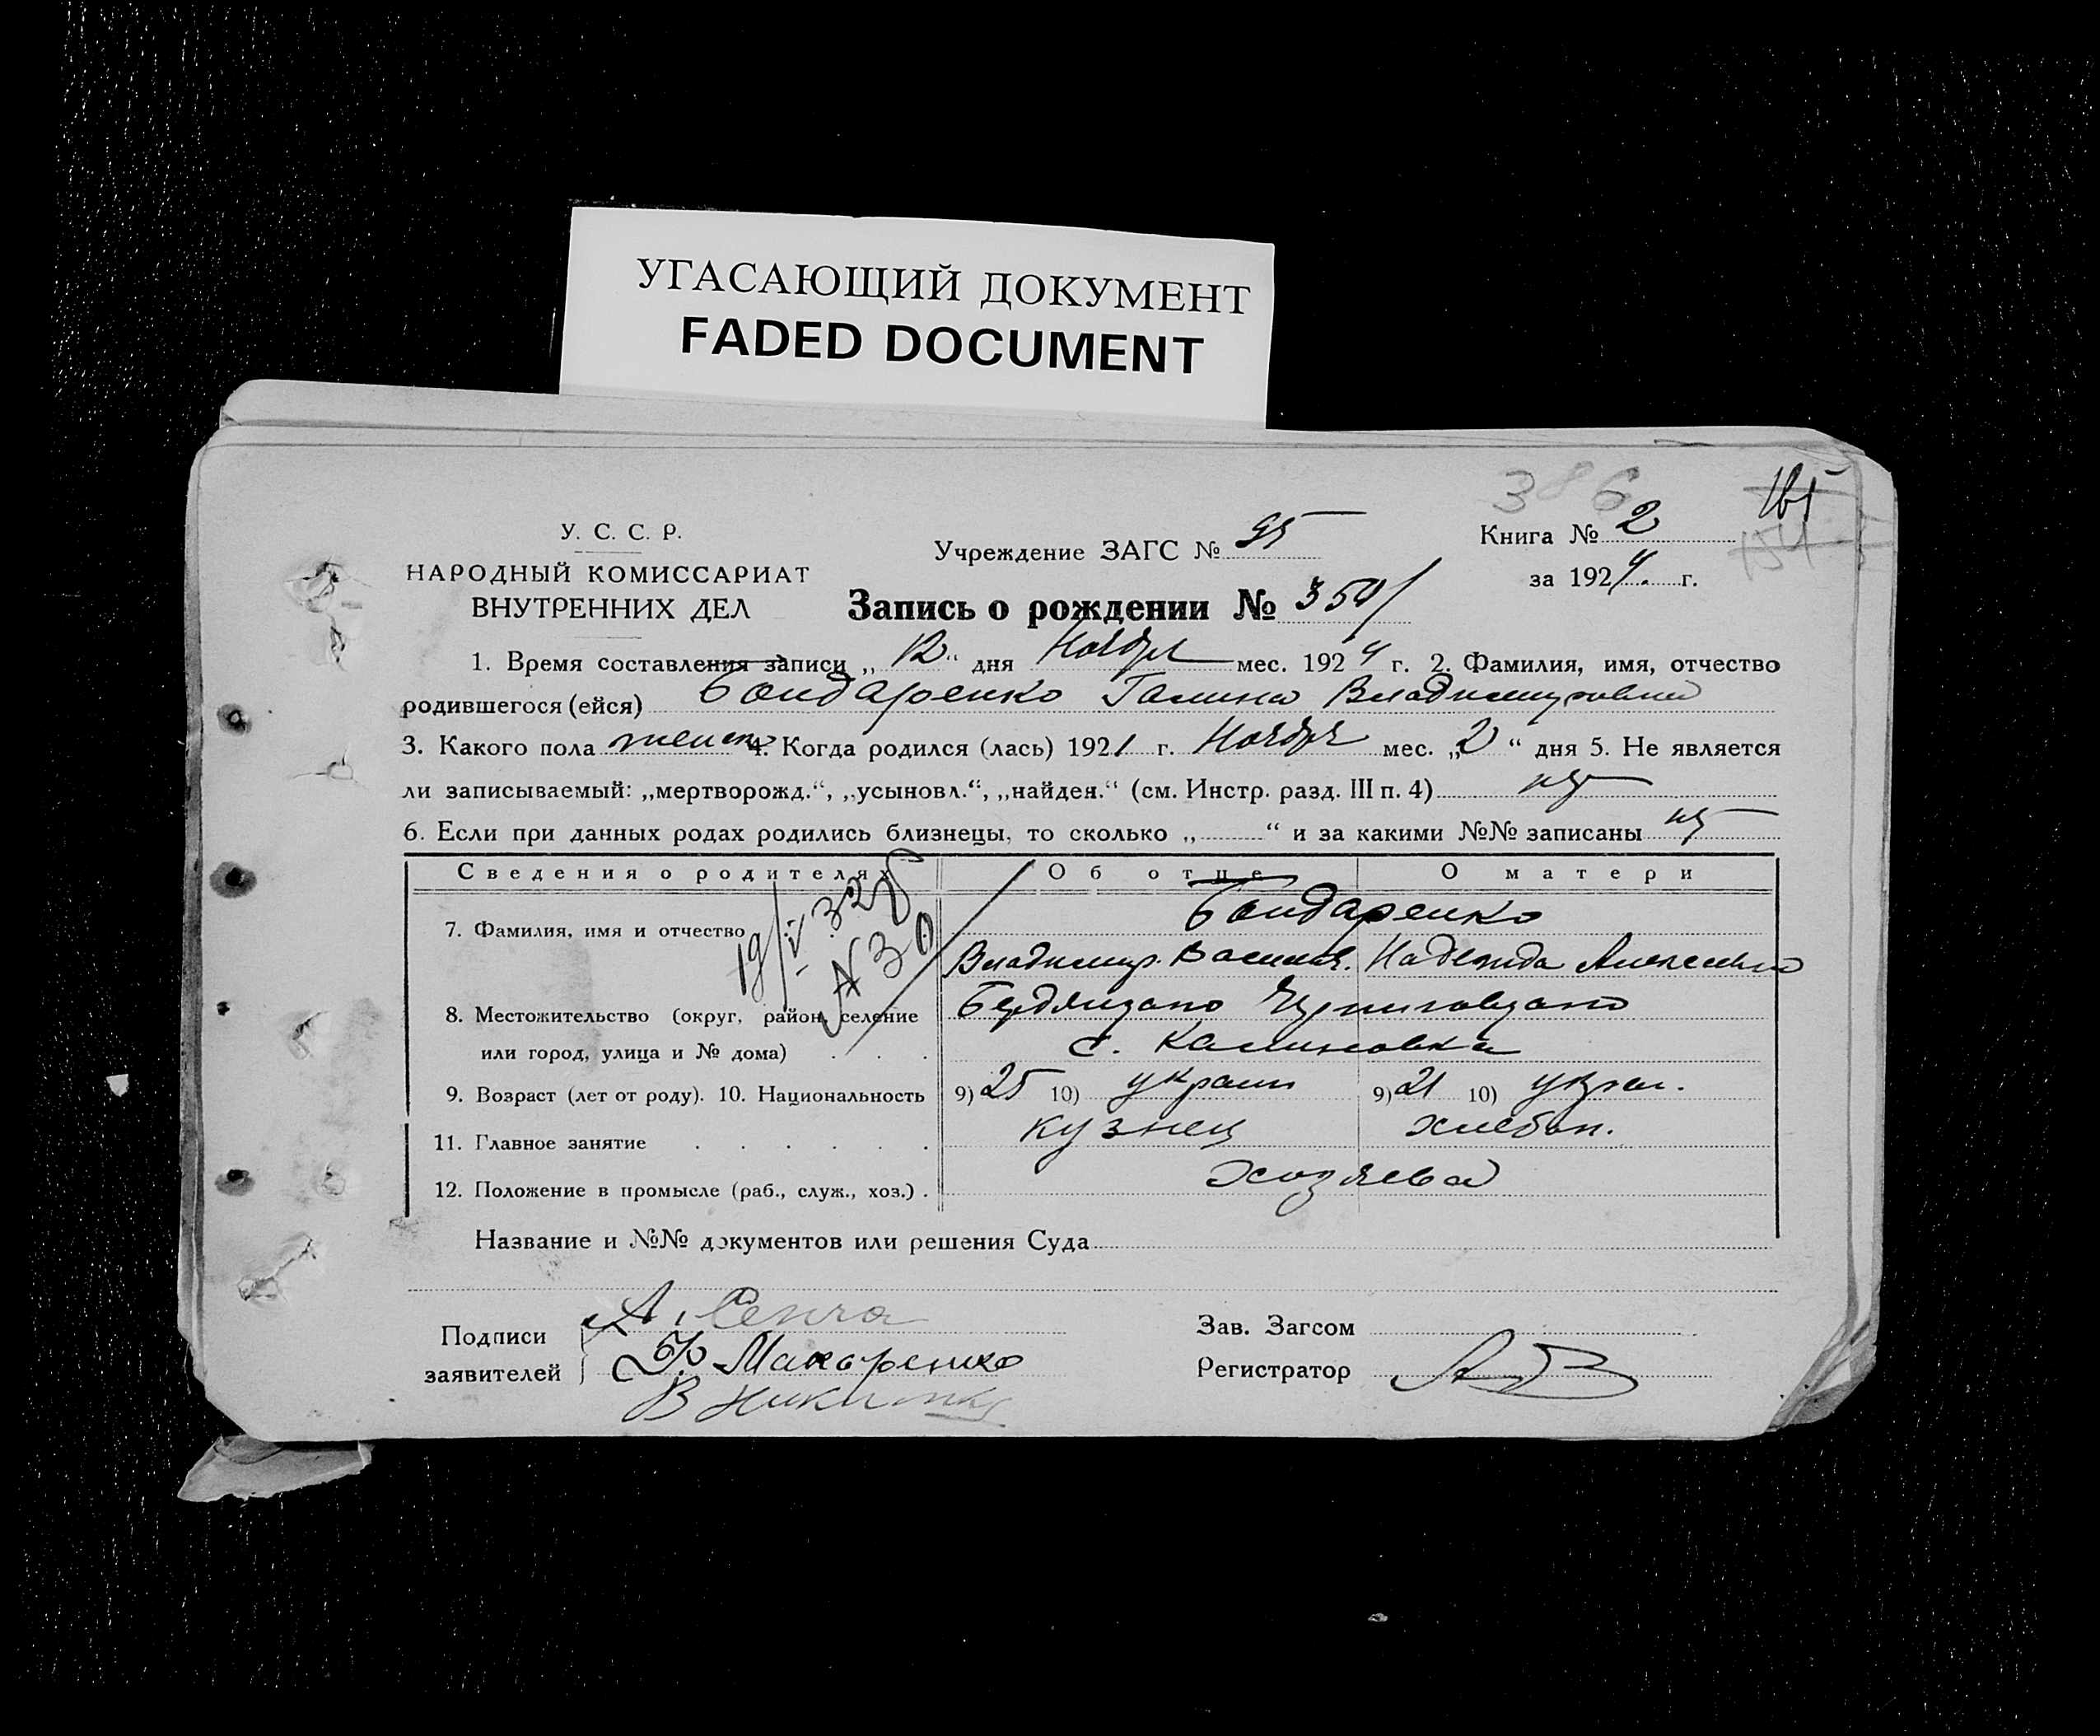 УГАСАЮЩИЙ ДОКУМЕНТ
FADED DOCUMENT
386
У. С. С. Р.
НАРОДНЫЙ КОМИССАРИАТ
ВНУТРЕННИХ ДЕЛ
Учреждение ЗАГС № 95
Книга № 2
154
за 1924 г.
Запись о рождении № 350
1. Время составления записи „12" дня Ноября мес. 1924 г. 2. Фамилия, имя, отчество
родившегося (ейся) Бондаренко Галина Владимировна
3. Какого пола женск 4. Когда родился (лась) 1921 г. Ноября мес. „2" дня 5. Не является
ли записываемый: „мертворожд.", „усыновл.", „найден." (см. Инстр. разд. III п. 4) нет
6. Если при данных родах родились близнецы, то сколько „ " и за какими №№ записаны нет
Сведения о родителях Об отце О матери
7. Фамилия, имя и отчество Бондаренко
Владимир Васильев. Надежда Алексеевна
8. Местожительство (округ, район, селение
или город, улица и № дома) . . . с. Калиновка
9. Возраст (лет от роду). 10. Национальность 9) 25 10) украин 9) 21 10) украи.
11. Главное занятие . . . . . кузнец хлебоп.
12. Положение в промысле (раб., служ., хоз.) . хозяева
N 30
Название и №№ документов или решения Суда
Подписи
заявителей
А. Сенча
Ф Макаренко
Зав. Загсом
Регистратор